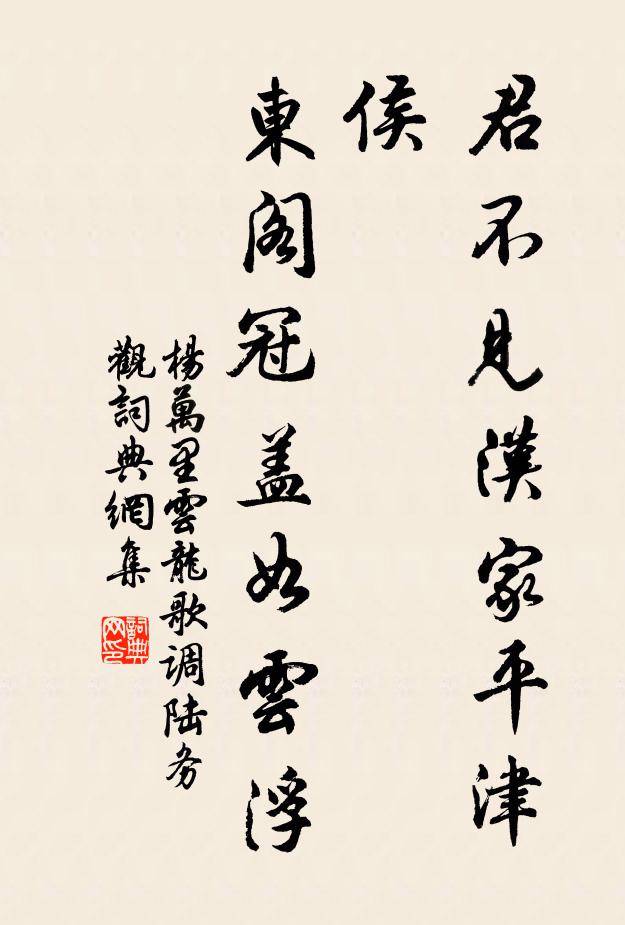 君不見漢家平津
侯
東阁冠盖如雲浮
楊萬里雲龍歌调陆务
觀詞典網集
詞典
网印